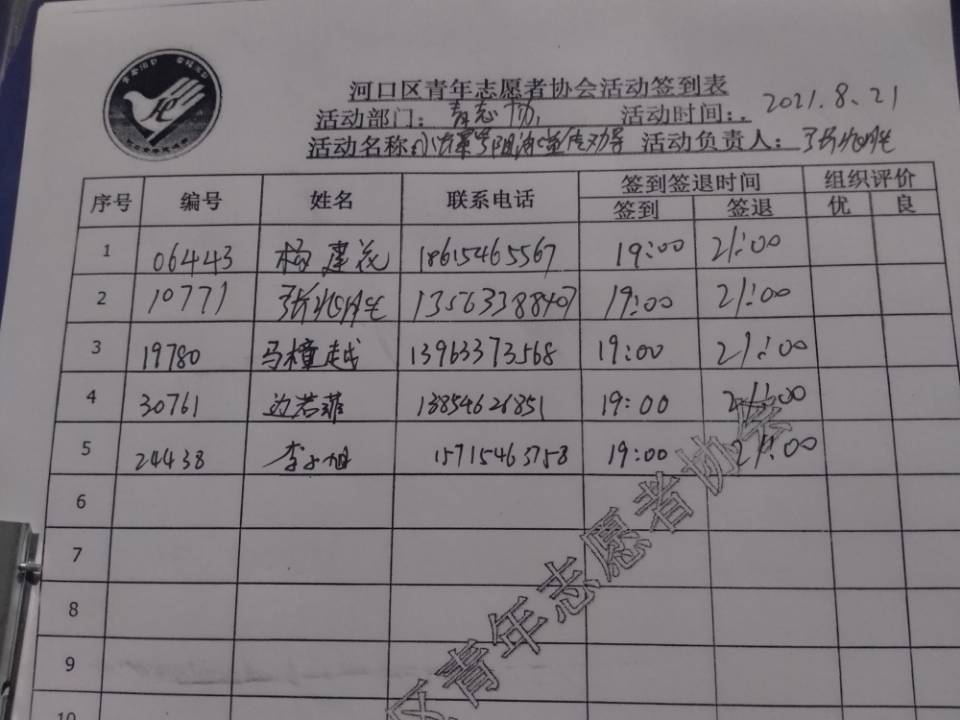 河口区青年志愿者协会活动签到表
活动部门：青志协 活动时间：. 2021.8.21
活动名称: 活动负责人：
序号 编号 姓名 联系电话 签到签退时间 组织评价
签到 签退 优 良
1 06443 杨建花 18615465567 19:00 21:00
2 10771 13563388407 19:00 21:00
3 19780 马樟越 13963373568 19:00 21:00
4 30761 边若菲 13854626851 19:00 21:00
5 24438 李 旭 15715463758 19:00 21:00
6
7
8
9
10
区青年志愿者协会